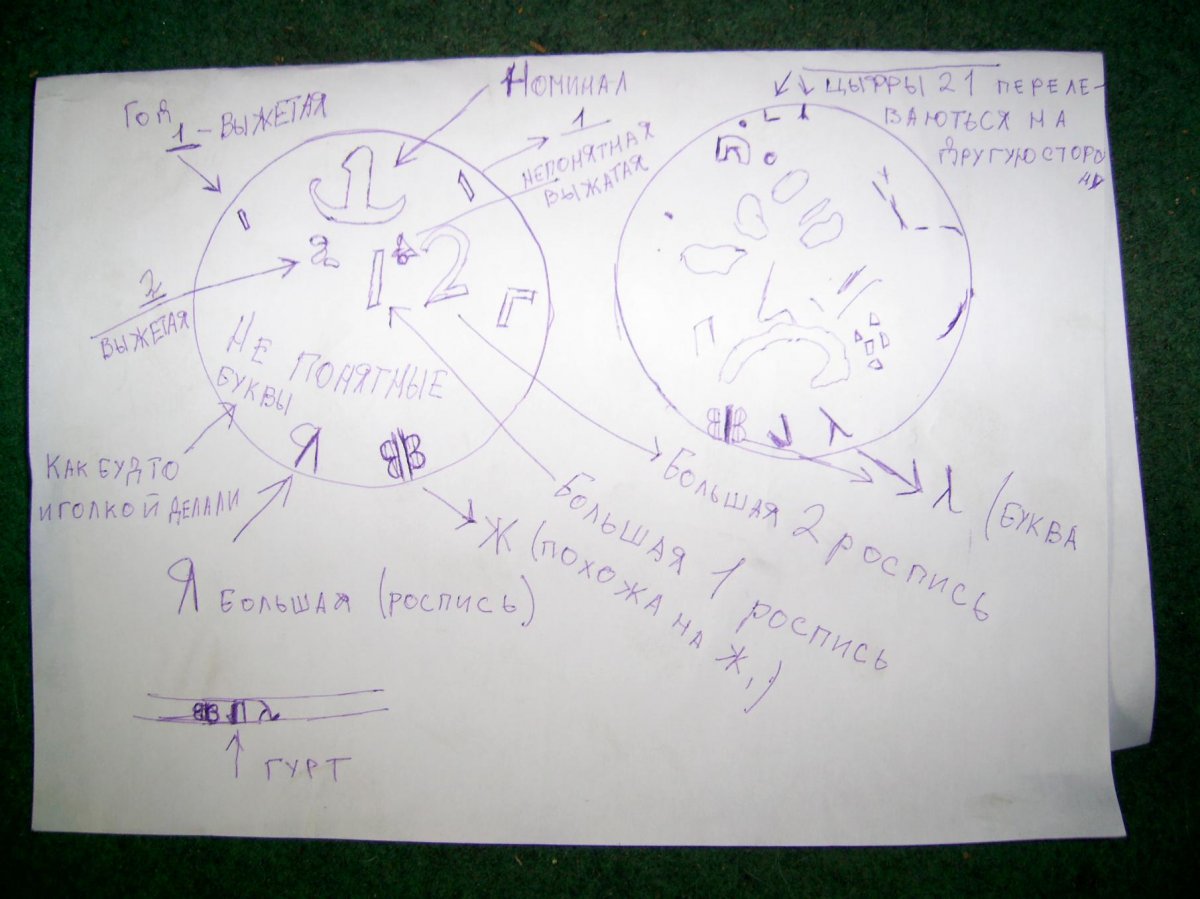 Год
1 - выжетая
Номинал
1
непонятная
выжатая
цыфры 21 переле-
ваються на
другую сторо
ну
1
2
2
выжетая
1
2
Г
Не понятные
буквы
Я
Как будто
иголкой делали
Я большая (роспись)
Ж (похожа на Ж,)
Большая 1 роспись
Большая 2 роспись
П
λ
λ (буква
П λ
гурт